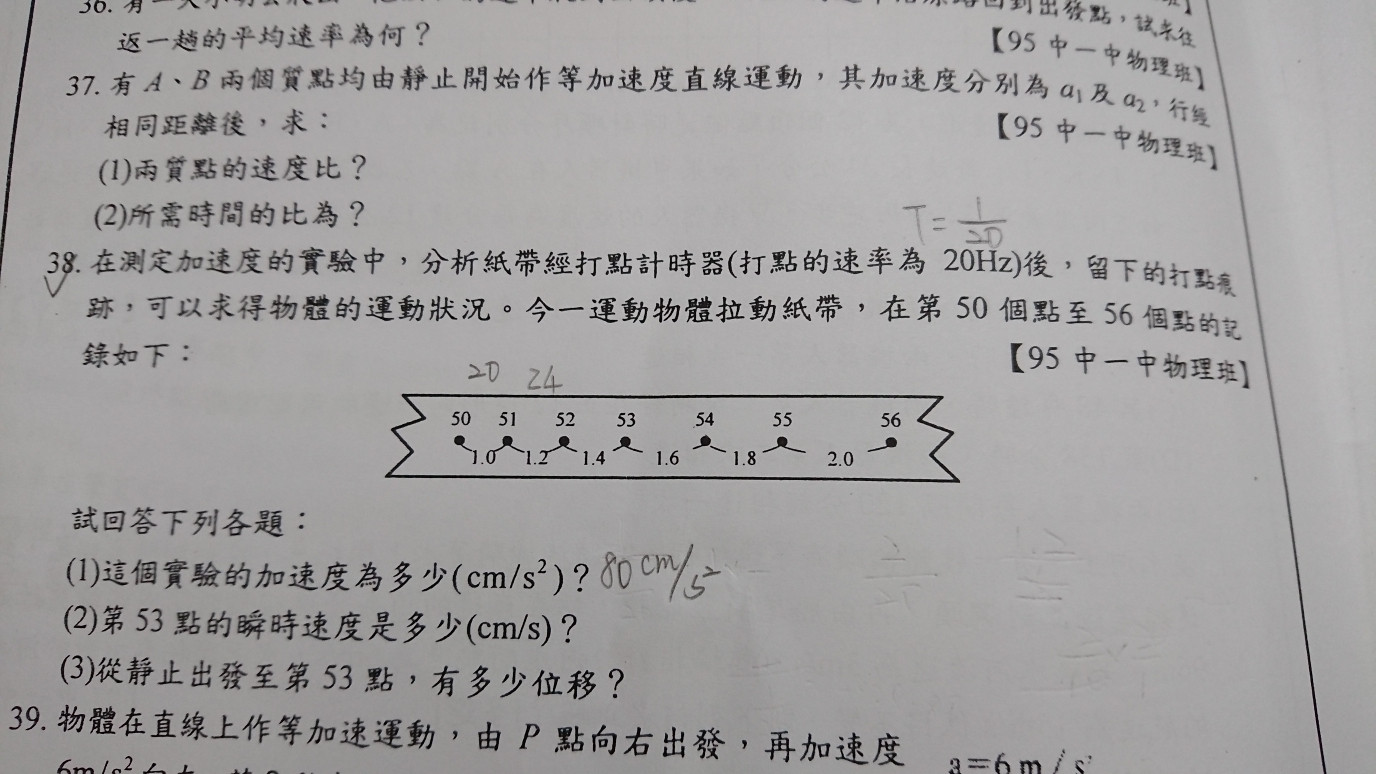 36. 有一天小明去爬山
回到出發點,試求往
返一趟的平均速率為何?
【95 中一中物理班】
37. 有 A、B 兩個質點均由靜止開始作等加速度直線運動,其加速度分別為 a₁ 及 a₂,行經
相同距離後,求:
【95 中一中物理班】
(1)兩質點的速度比?
(2)所需時間的比為?
T = 1/20
38. 在測定加速度的實驗中,分析紙帶經打點計時器(打點的速率為 20Hz)後,留下的打點痕
跡,可以求得物體的運動狀況。今一運動物體拉動紙帶,在第 50 個點至 56 個點的記
錄如下:
【95 中一中物理班】
20 24
50 51 52 53 54 55 56
1.0 1.2 1.4 1.6 1.8 2.0
試回答下列各題:
(1)這個實驗的加速度為多少(cm/s²)? 80 cm/s²
(2)第 53 點的瞬時速度是多少(cm/s)?
(3)從靜止出發至第 53 點,有多少位移?
39. 物體在直線上作等加速運動,由 P 點向右出發,再加速度
a=6 m / s
6m/s² 向左